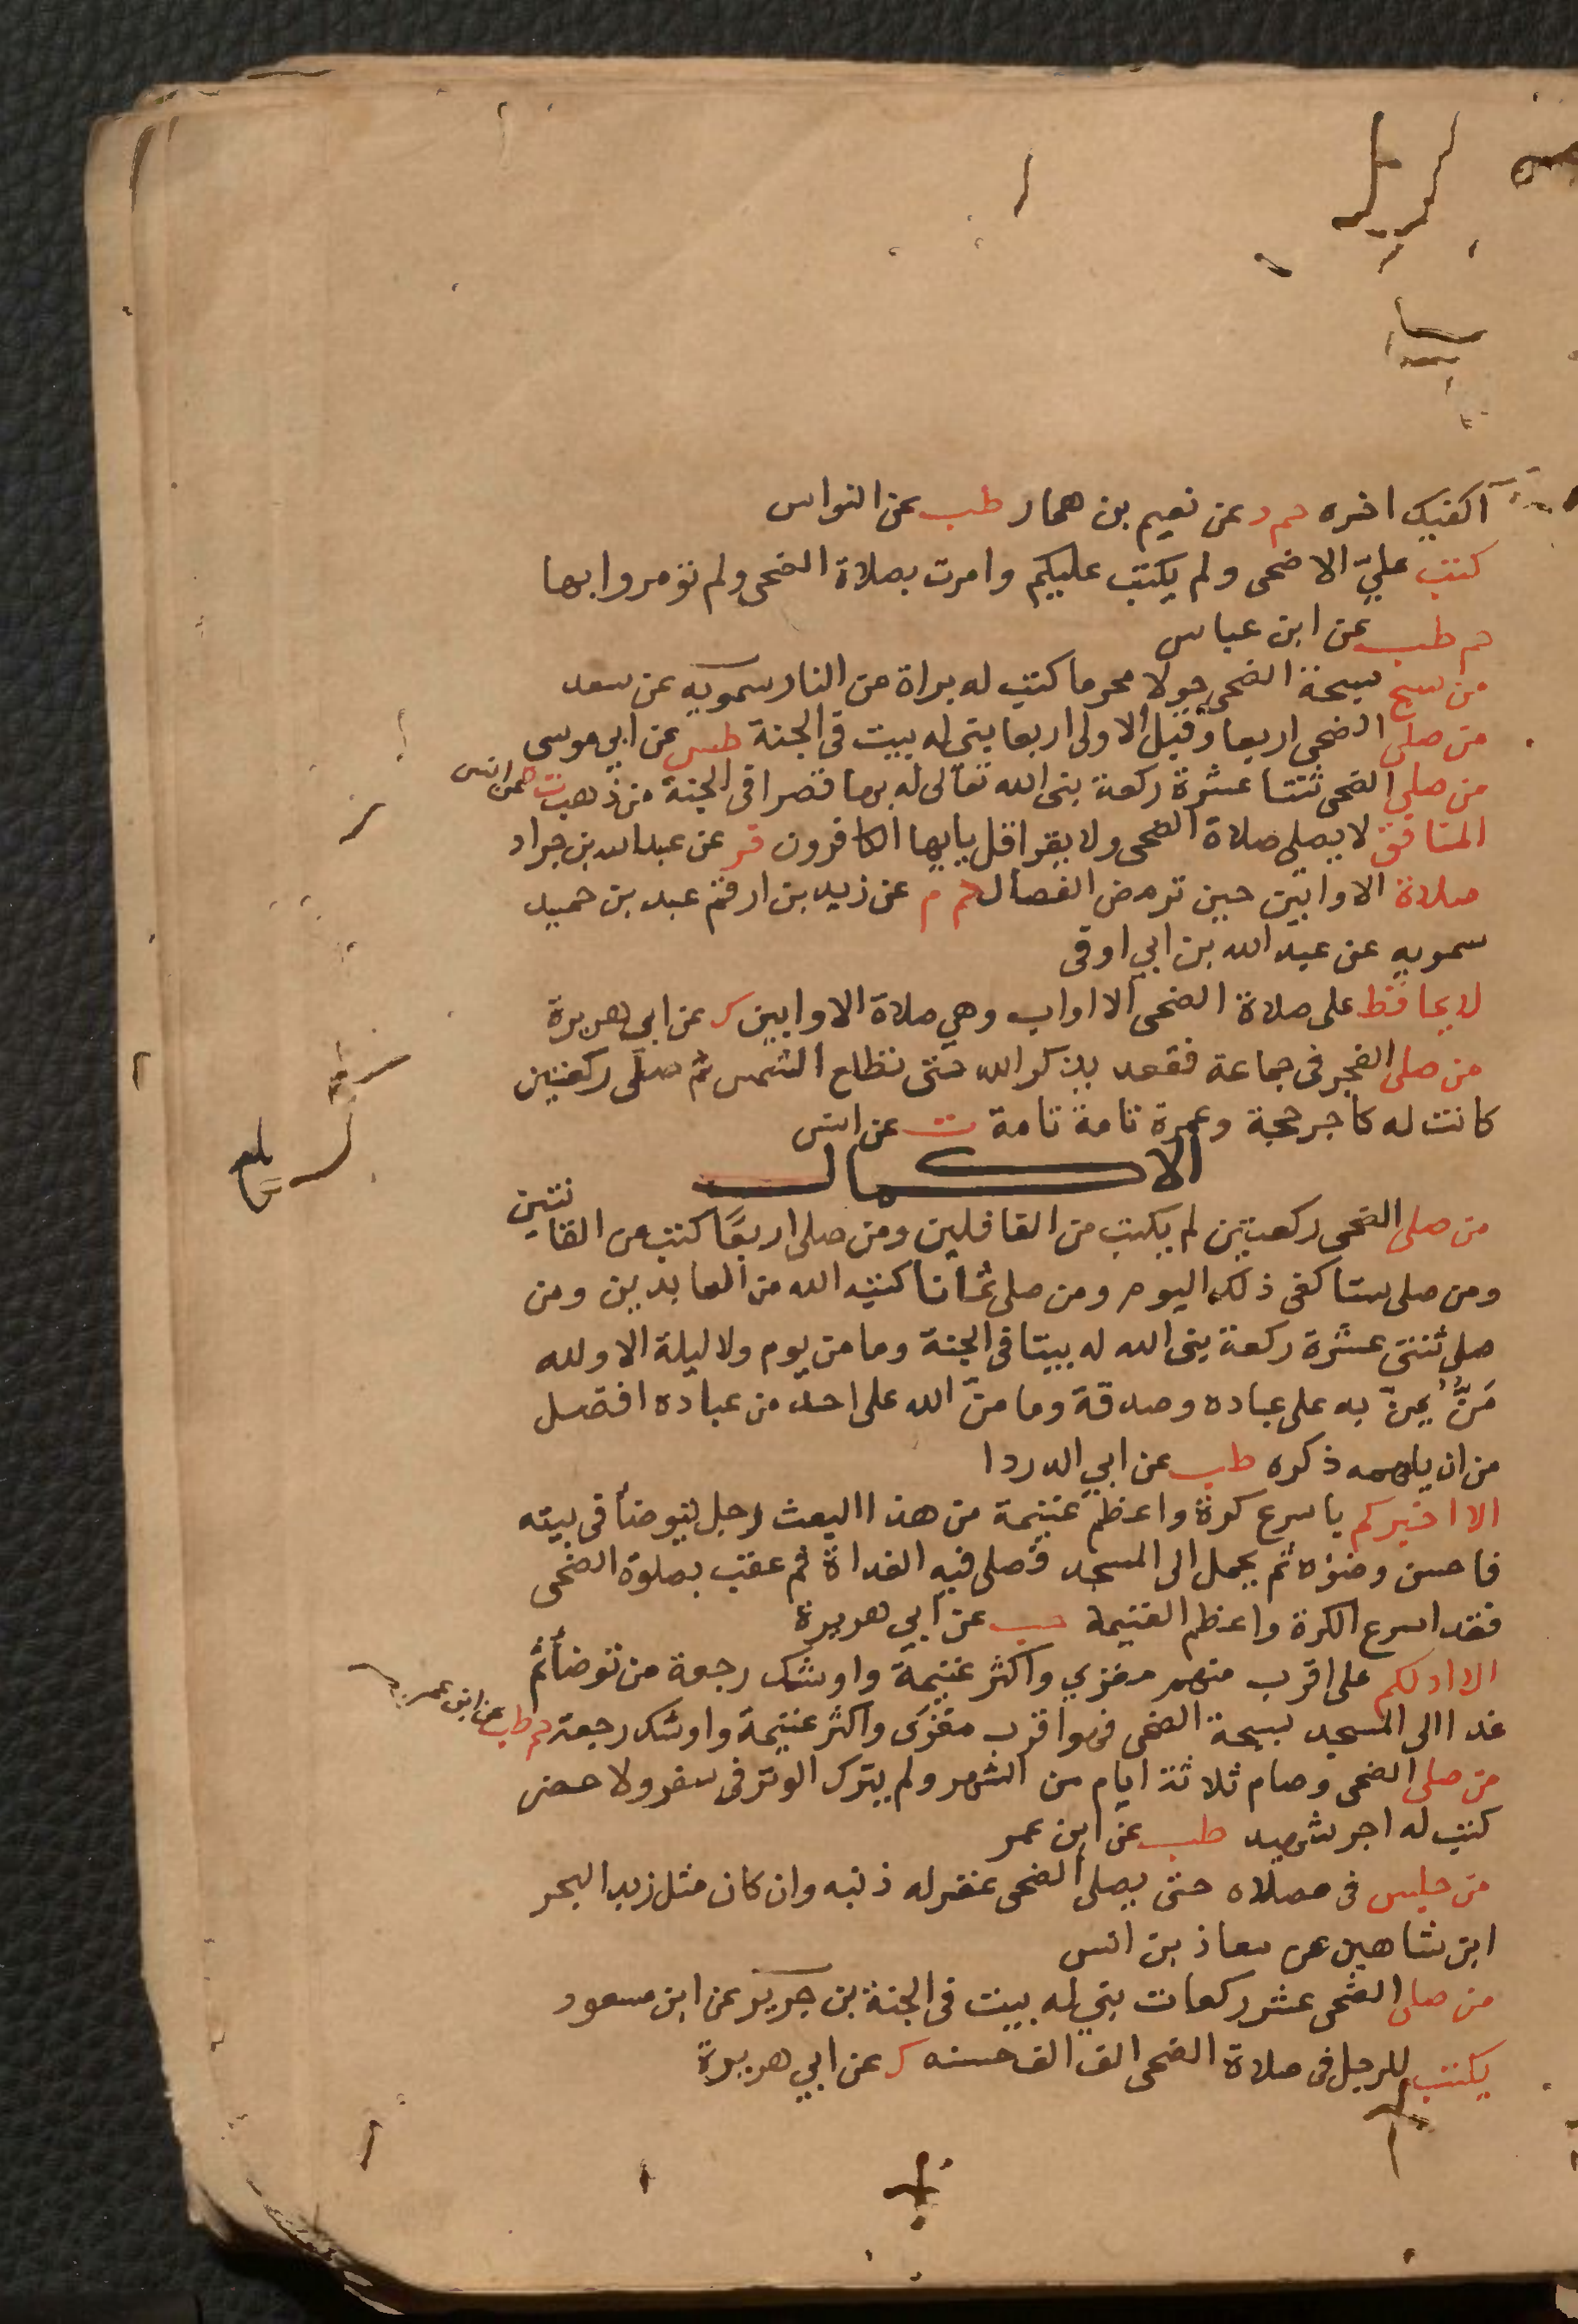 اكفيك اخره حم د عن نعيم بن همار طب عن النواس
كتب عليّ الاضحى ولم يكتب عليكم وامرت بصلاة الضحى ولم تؤمروا بها
حم طب عن ابن عباس
من سبح سبحة الضحى حولا محرما كتب له براة من النار سمويه عن سعد
من صلى الضحى اربعا وقبل الاولى اربعا بني له بيت في الجنة طس عن ابي موسى
من صلى الضحى ثنتا عشرة ركعة بنى الله تعالى له بها قصرا في الجنة من ذهب ت ه عن انس
المنافق لا يصلي صلاة الضحى ولا يقرا قل يايها الكافرون فر عن عبد الله بن جراد
صلاة الاوابين حين ترمض الفصال حم م عن زيد بن ارقم عبد بن حميد
سمويه عن عبد الله بن ابي اوفى
لا يحافظ على صلاة الضحى الا اواب وهي صلاة الاوابين ك عن ابي هريرة
من صلى الفجر في جماعة فقعد يذكر الله حتى تطلع الشمس ثم صلى ركعتين
كانت له كاجر حجة وعمرة تامة تامة ت عن انس
الاكمال
من صلى الضحى ركعتين لم يكتب من الغافلين ومن صلى اربعًا كتب من القانتين
ومن صلى ستا كفى ذلك اليوم ومن صلى ثمانا كتبه الله من العابدين ومن
صلى ثنتى عشرة ركعة بنى الله له بيتا في الجنة وما من يوم ولا ليلة الا ولله
مَنٌّ يمنّ به على عباده وصدقة وما منّ الله على احد من عباده افضل
من ان يلهمه ذكره طب عن ابي الدردا
الا اخبركم باسرع كرة واعظم غنيمة من هذا البعث رجل توضأ في بيته
فاحسن وضوءه ثم تحمل الى المسجد فصلى فيه الغداة ثم عقب بصلوة الضحى
فقد اسرع الكرة واعظم الغنيمة حب عن ابي هريرة
الا ادلكم على اقرب منهم مغزي واكثر غنيمة واوشك رجعة من توضأ ثم
غدا الى المسجد لسبحة الضحى فهو اقرب مغزى واكثر غنيمة واوشك رجعة حم طب عن ابن عمرو
من صلى الضحى وصام ثلاثة ايام من الشهر ولم يترك الوتر في سفر ولا حضر
كتب له اجر شهيد طب عن ابن عمر
من جلس في مصلاه حتى يصلى الضحى غفر له ذنبه وان كان مثل زبد البحر
ابن شاهين عن معاذ بن انس
من صلى الضحى عشر ركعات بني له بيت في الجنة بن جرير عن ابن مسعود
يكتب للرجل في صلاة الضحى الف الف حسنه ك عن ابي هريرة